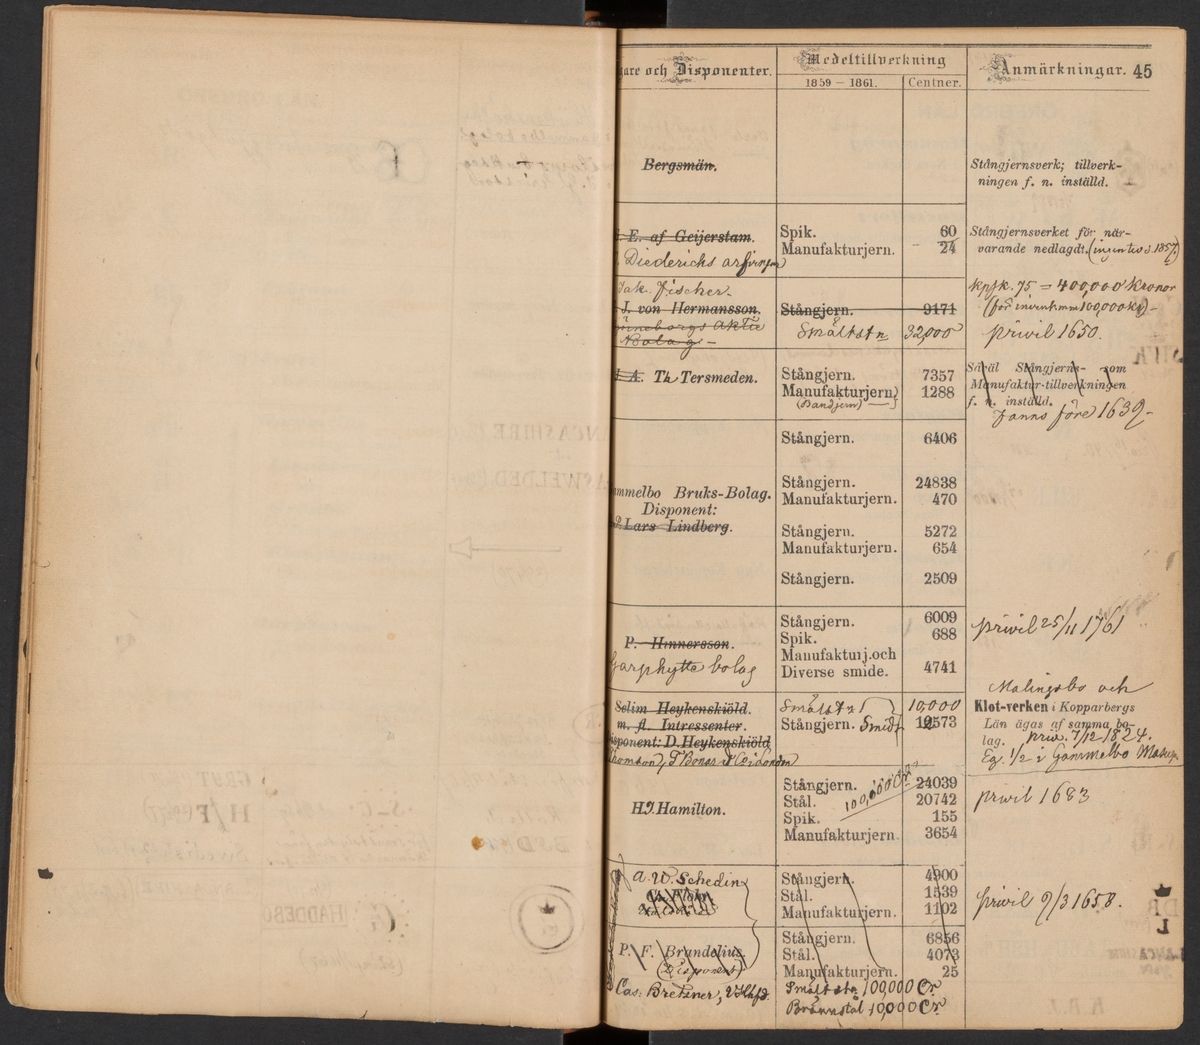 gare och Disponenter.
Medeltillverkning
1859 – 1861. Centner.
Anmärkningar. 45
Bergsmän.
Stångjernsverk; tillverk-
ningen f. n. inställd.
E. af Geijerstam.
Diederichs
Spik. 60
Manufakturjern. 24
Stångjernsverket för när-
varande nedlagdt.
Jak. Fischer.
J. von Hermansson.
Aktie
Bolag –
Stångjern. 9171
Smältst 32,000
kpsk. 75 = 400,000 Kronor
100,000
privil 1650.
A. Th Tersmeden.
Stångjern. 7357
Manufakturjern 1288
(Bandjern)
Såväl Stångjerns- som
Manufaktur-tillverkningen
f. n. inställd.
fanns före 1639 –
Stångjern. 6406
mmelbo Bruks-Bolag.
Disponent:
Lars Lindberg.
Stångjern. 24838
Manufakturjern. 470
Stångjern. 5272
Manufakturjern. 654
Stångjern. 2509
P. Hinnersson.
Garphytte bolag
Stångjern. 6009
Spik. 688
Manufakturj. och
Diverse smide. 4741
privil 25/11 1761
Selim Heykenskiöld
m. fl. Intressenter.
sponent: D. Heykenskiöld
Thomson, T Bonar & Co London
Smältst 10,000
Stångjern. Smidt 12573
Malingsbo och
Klot-verken i Kopparbergs
Län ägas af samma bo-
lag. priv. 7/12 1824.
Eg. 1/2 i Gammelbo
H. Hamilton.
Stångjern. 24039
Stål. 20742
100,000 Ctr
Spik. 155
Manufakturjern. 3654
privil 1683
A. W. Schedin
Stångjern. 4900
Stål. 1539
Manufakturjern. 1102
privil 9/3 1658.
P. F. Brandelius.
(Disponent)
Cas: Bretzner,
Stångjern. 6856
Stål. 4073
Manufakturjern. 25
Smältsta 100,000 Ctr
Brännstål 10,000 Ctr